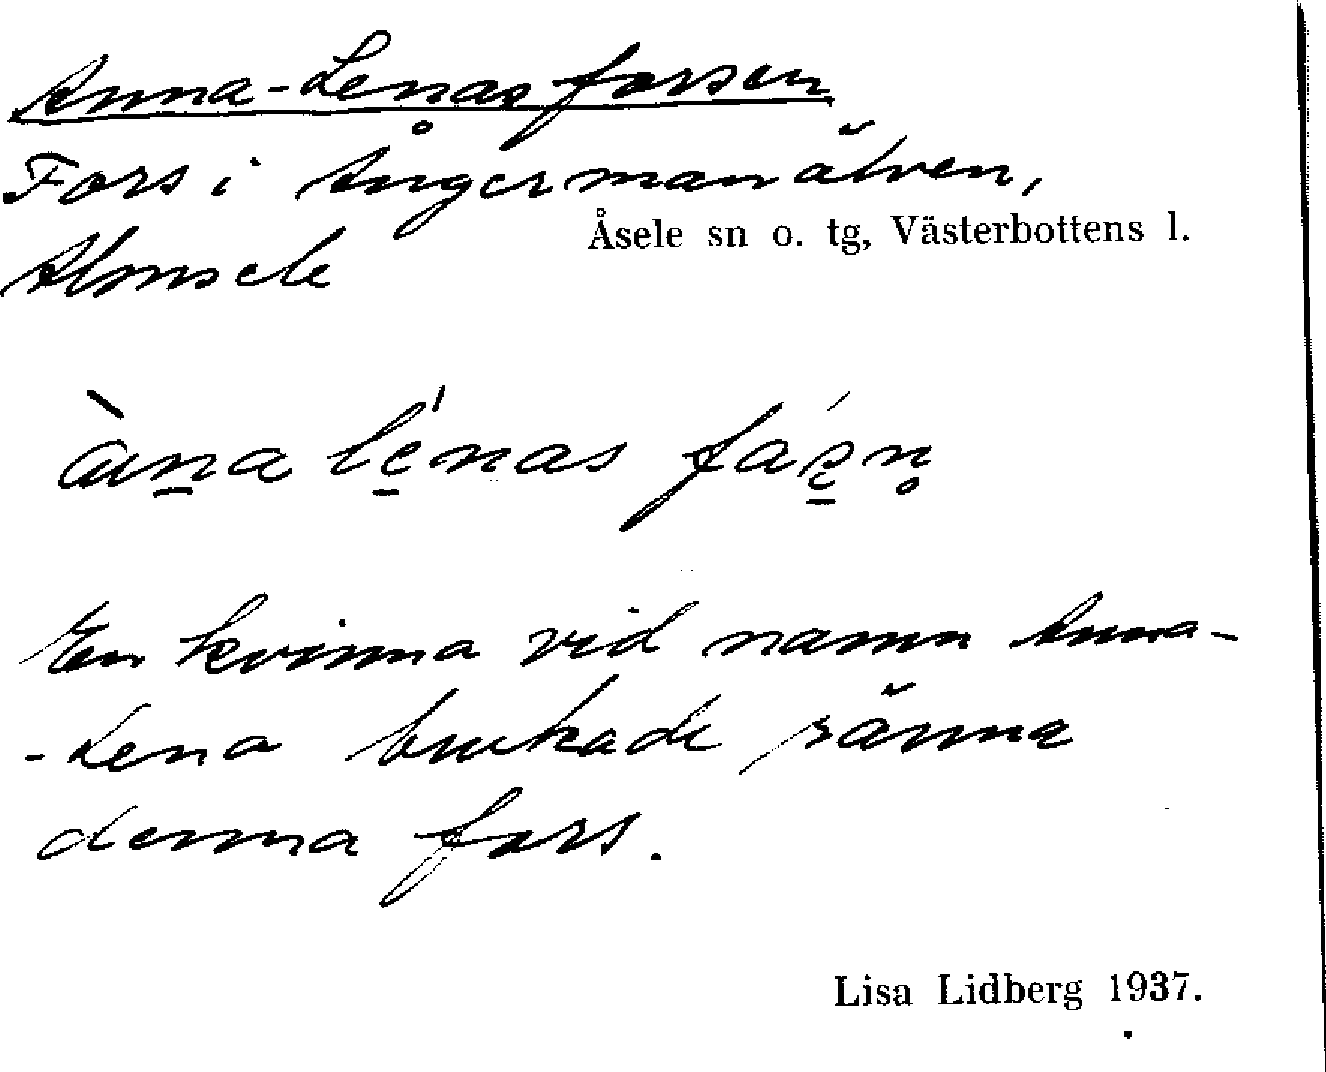 Anna-Lenasforsen
Fors i Ångermanälven,
Åsele sn o. tg, Västerbottens l.
Almsele
àna lénas
En kvinna vid namn Anna-
-Lena brukade ränna
denna fors.
Lisa Lidberg 1937.